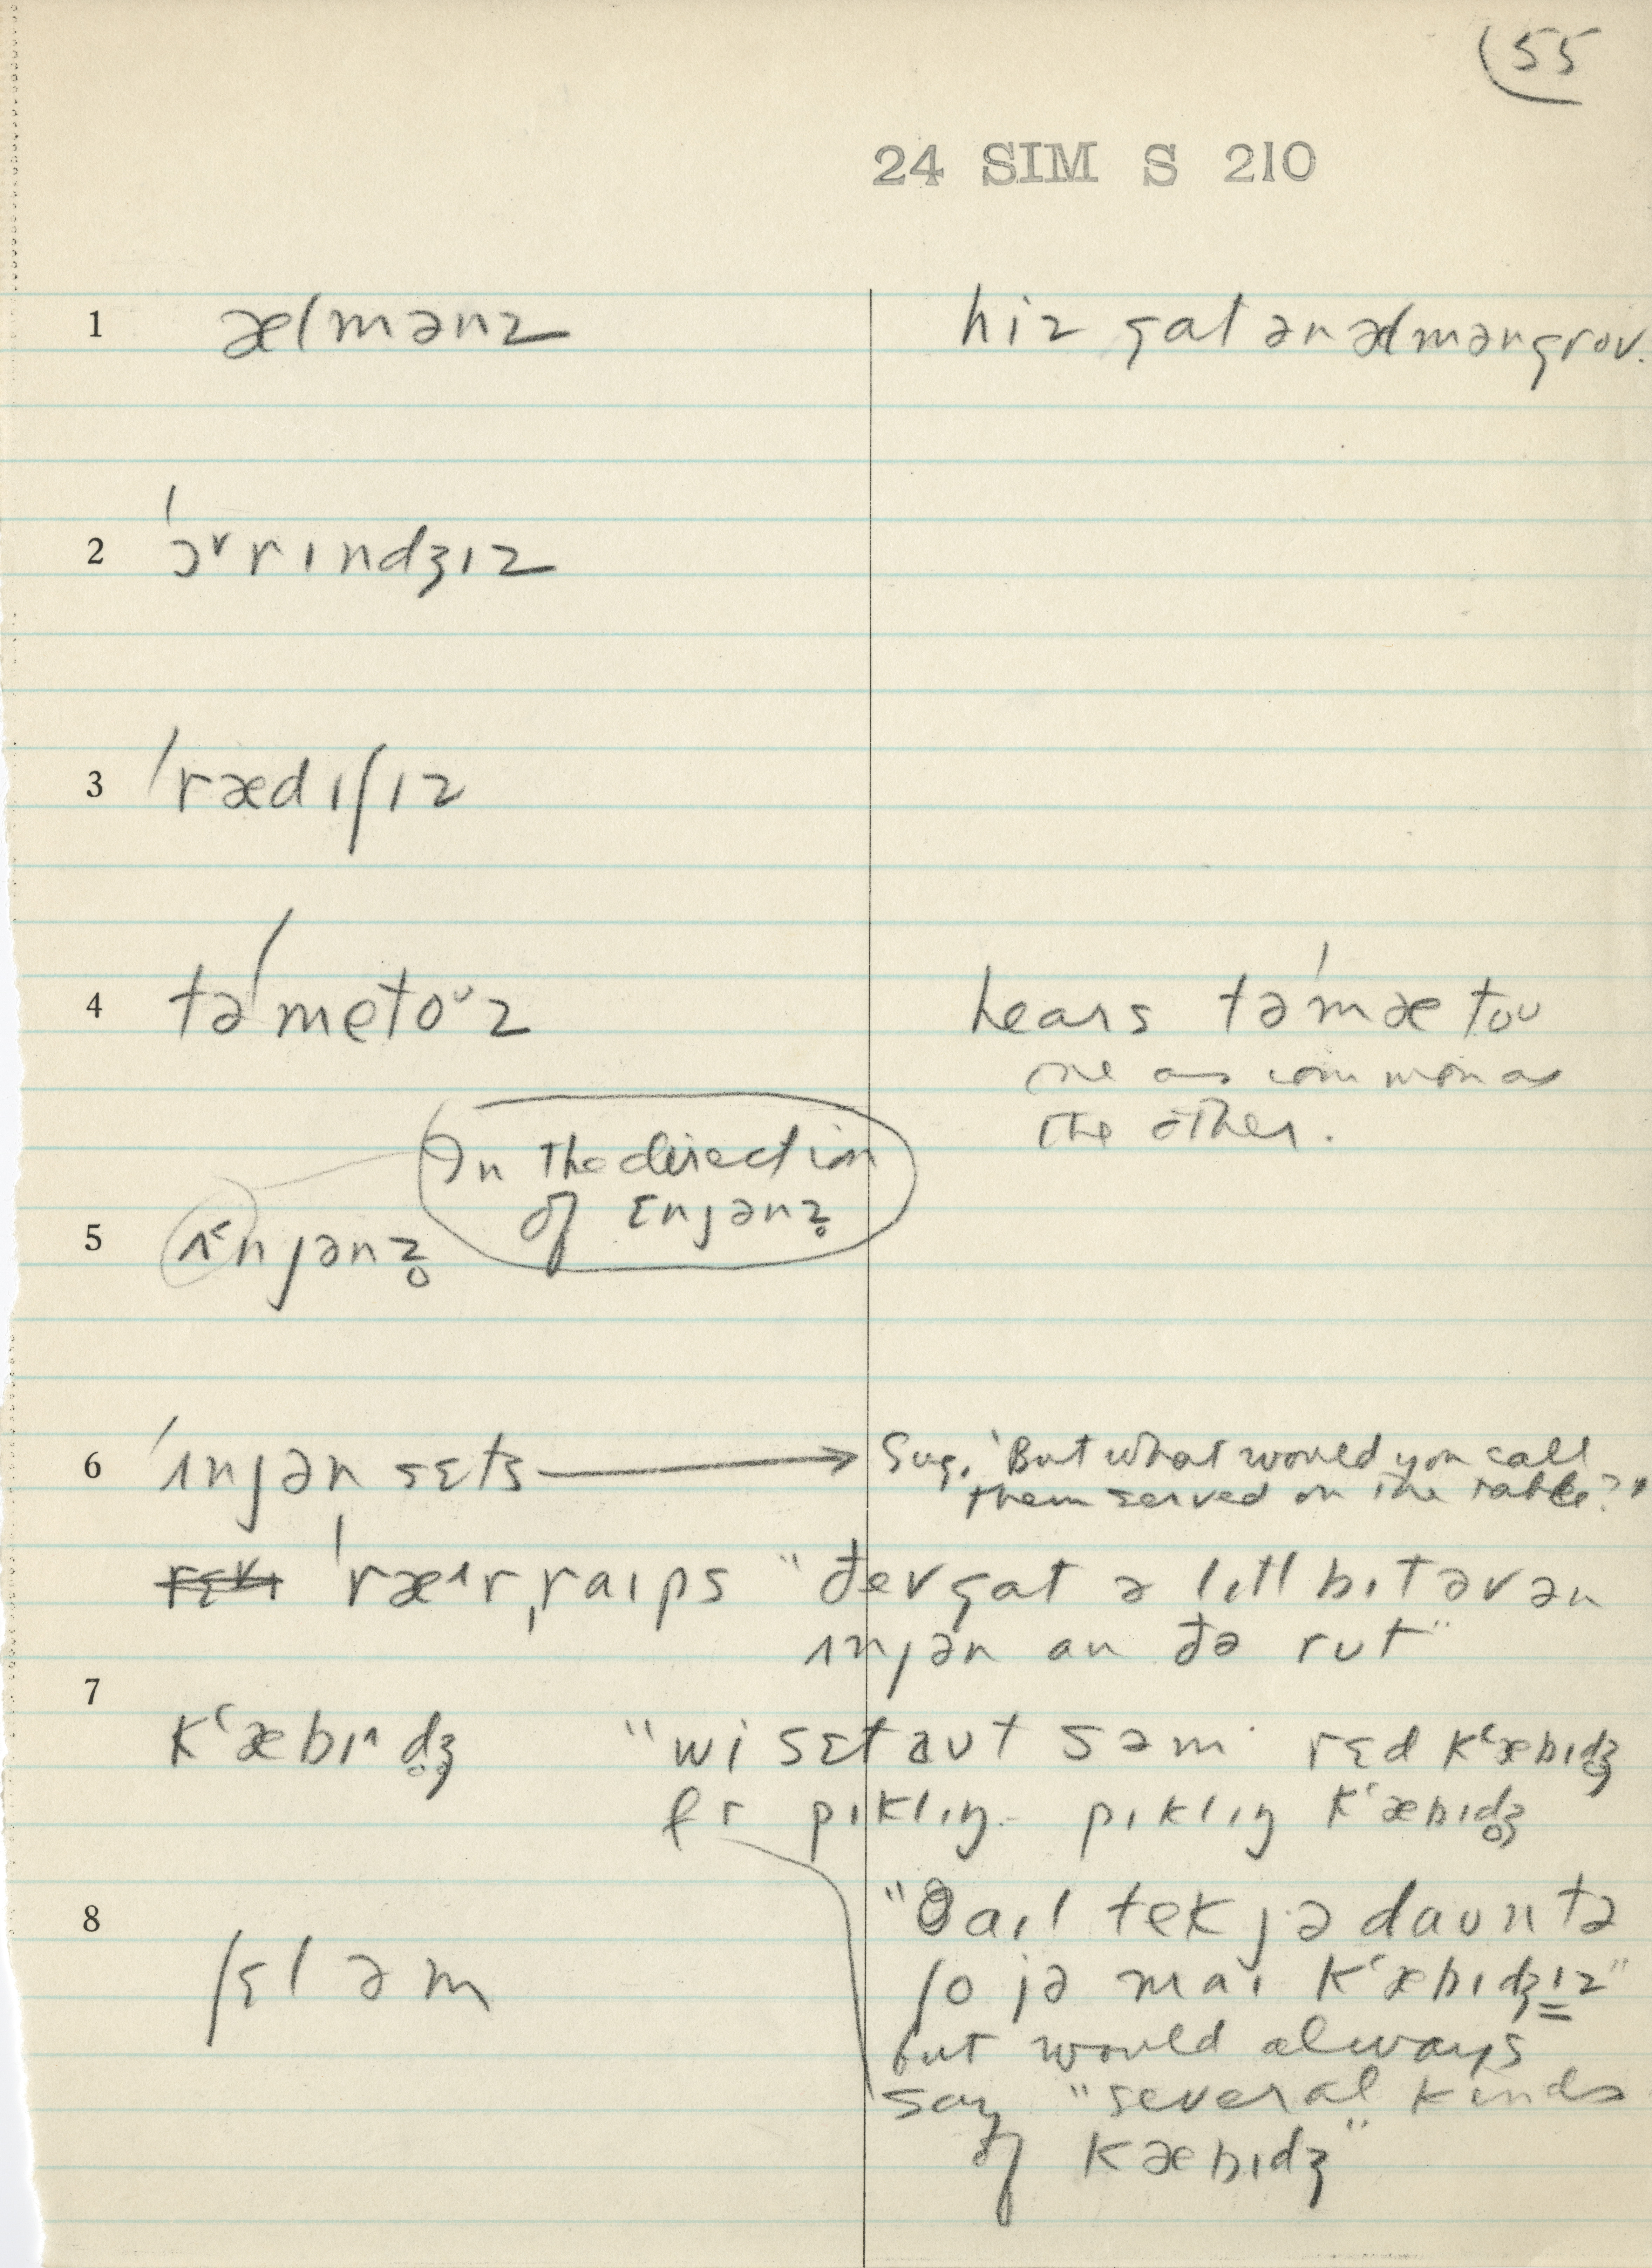 55
24 SIM S 210
1 ælmənz hiz gat ən ælməngrov.
2 ˈɔ˅rɪndʒɪz
3 ˈrædɪʃɪz
4 təˈmetoᶸz hears təˈmætoᶸ
one as common as
the other.
In the direction
of ɛnjənz̥
5 ɪ˂njənz̥
6 ˈɪnjən sɛts → Sug. "But what would you call
them served on the table?"
ˈræ˄rˌraɪps "ðev gat ə lɪtl bɪt əv ən
ɪnjən an ðə rut"
7
kʻæbɪ˄d̥ʒ̥ "wi sɛt aut səm rɛd kʻæbɪdʒ̥
fr pɪklɪŋ. pɪklɪŋ kʻæbɪdʒ̥
8 "aɪl tek jə daun tə
ʃɛləm ʃo jə maɪ kʻæbɪdʒɪz"
but would always
say "several kinds
of kæbɪdʒ"